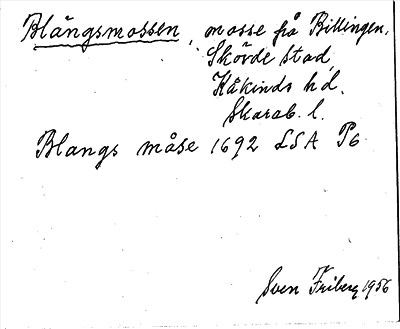 Blängsmossen, mosse på Billingen,
Skövde stad,
Kåkinds hd.
Skarab. l.
Blangs måse 1692 LSA P6
Sven Friberg 1956